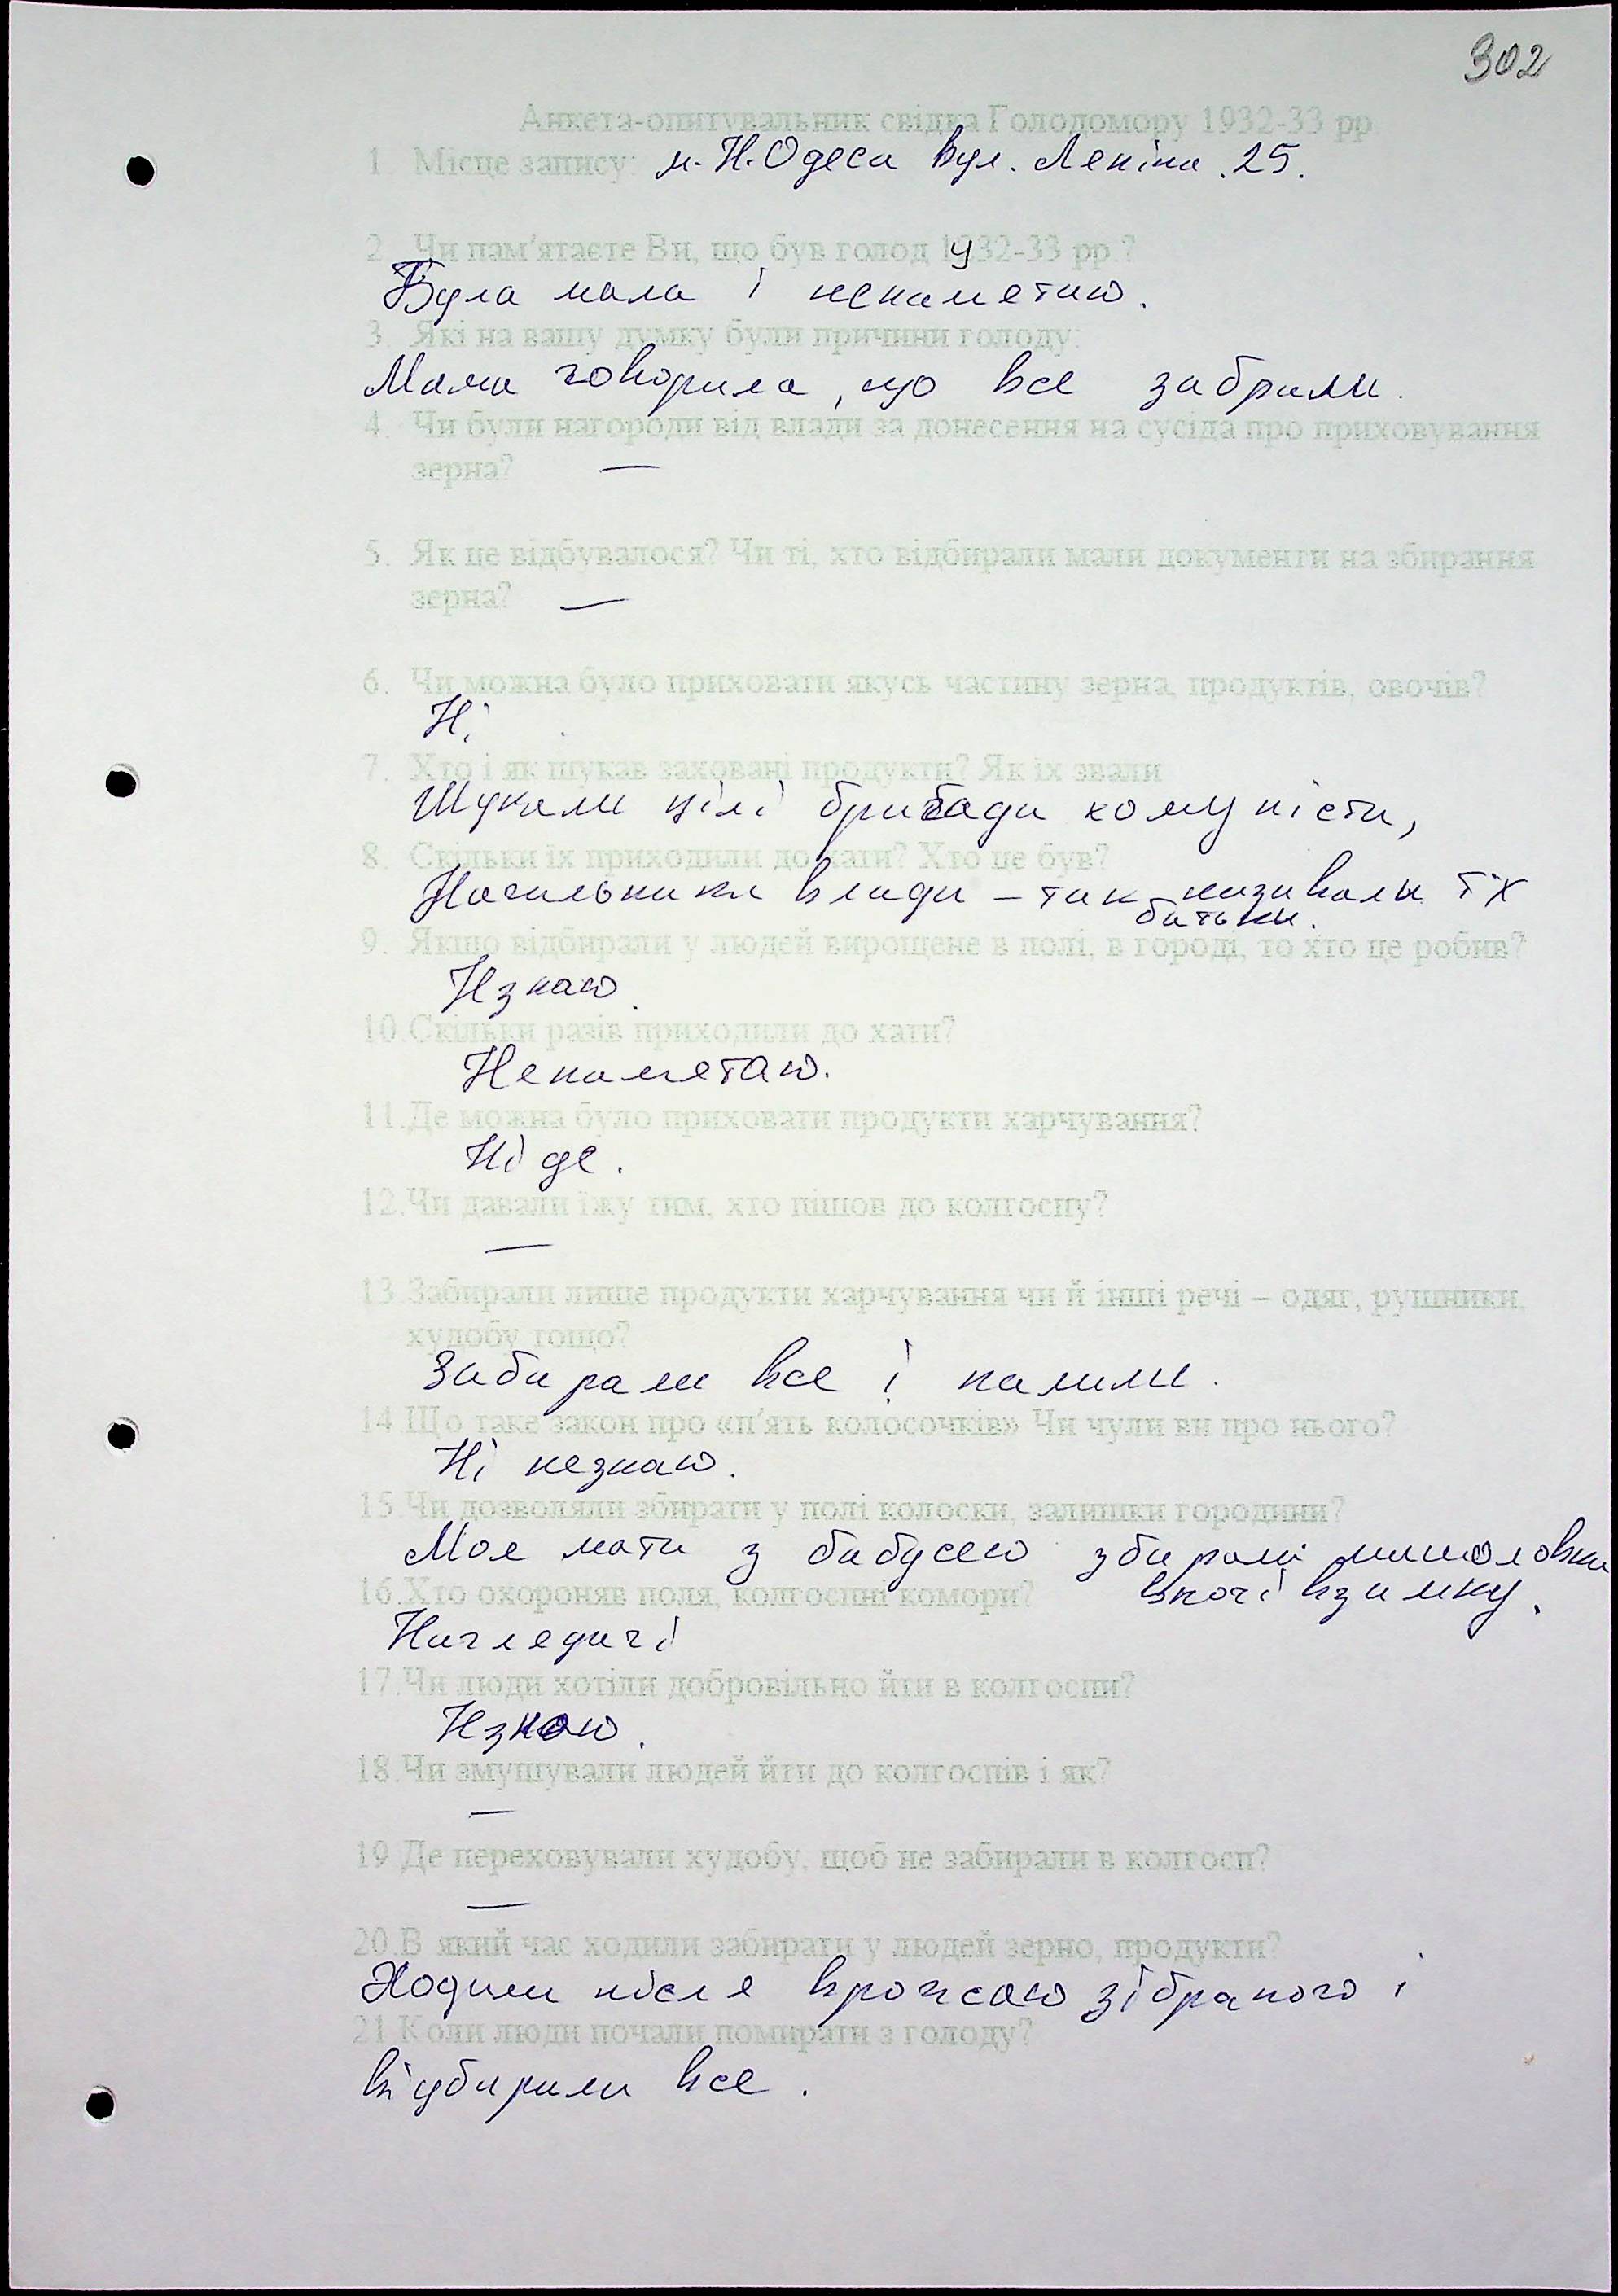 302
Анкета-опитувальник свідка Голодомору 1932-33 рр.
1. Місце запису: м. Н. Одеса вул. Леніна .25.
2. Чи пам'ятаєте Ви, що був голод 1932-33 рр.?
Була мала і непаметаю.
3. Які на вашу думку були причини голоду:
Мама говорила, що все забрали.
4. Чи були нагороди від влади за донесення на сусіда про приховування
зерна? —
5. Як це відбувалося? Чи ті, хто відбирали мали документи на збирання
зерна? —
6. Чи можна було приховати якусь частину зерна, продуктів, овочів?
Ні
7. Хто і як шукав заховані продукти? Як їх звали
Шукали цілі бригади комуністи,
8. Скільки їх приходили до хати? Хто це був?
Начальники влади – так називали їх
батьки.
9. Якщо відбирали у людей вирощене в полі, в городі, то хто це робив?
Нзнаю.
10. Скільки разів приходили до хати?
Непаметаю.
11. Де можна було приховати продукти харчування?
Ні де.
12. Чи давали їжу тим, хто пішов до колгоспу?
—
13. Забирали лише продукти харчування чи й інші речі – одяг, рушники,
худобу тощо?
Забирали все і палили.
14. Що таке закон про «п'ять колосочків» Чи чули ви про нього?
Ні незнаю.
15. Чи дозволяли збирати у полі колоски, залишки городини?
Моя мати з бабусею збирали
вночі взимку.
16. Хто охороняв поля, колгоспні комори?
Нагледачі
17. Чи люди хотіли добровільно йти в колгоспи?
Нзнаю.
18. Чи змушували людей йти до колгоспів і як?
—
19. Де переховували худобу, щоб не забирали в колгосп?
—
20. В який час ходили забирати у людей зерно, продукти?
Ходили після врожаю зібраного і
21. Коли люди почали помирати з голоду?
відбирали все.